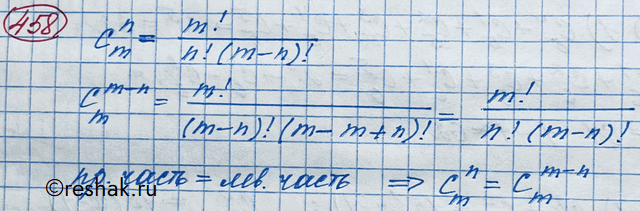 458
C_m^n = m! / n! (m-n)!
C_m^{m-n} = m! / (m-n)! (m-m+n)! = m! / n! (m-n)!
пр. часть = лев. часть ⇒ C_m^n = C_m^{m-n}
©reshak.ru